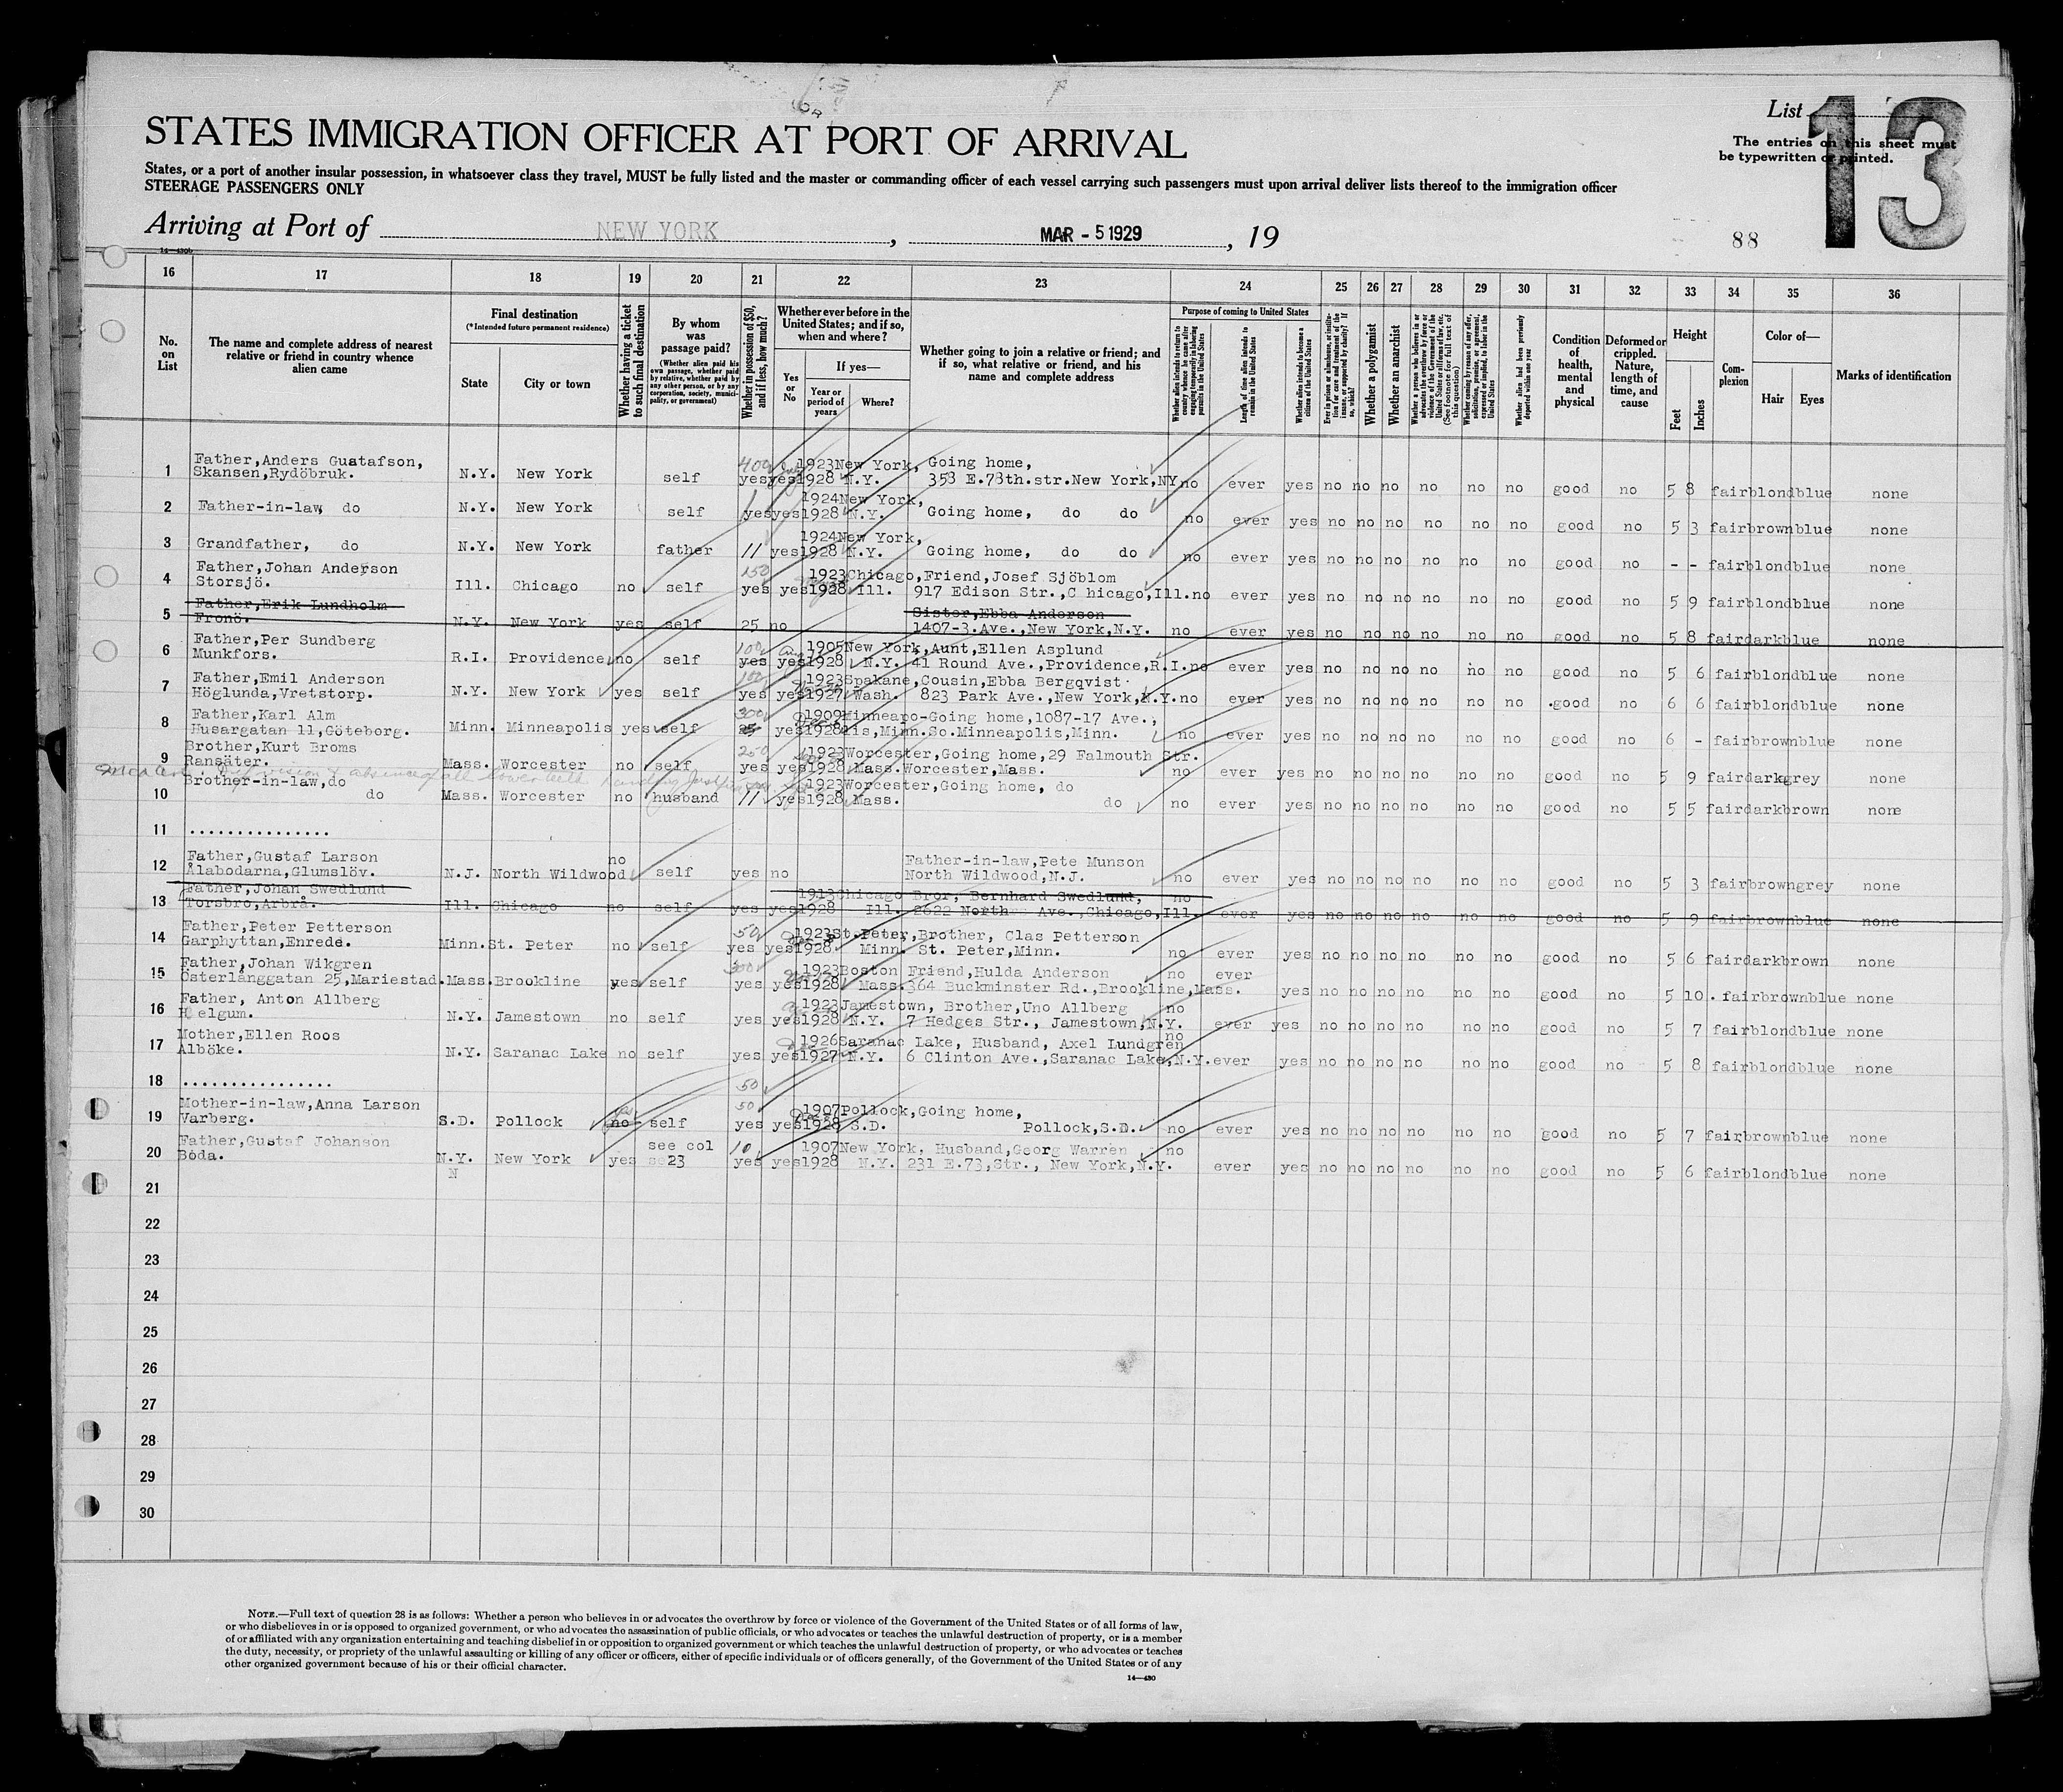 List 13
STATES IMMIGRATION OFFICER AT PORT OF ARRIVAL
The entries on this sheet must
be typewritten or printed.
States, or a port of another insular possession, in whatsoever class they travel, MUST be fully listed and the master or commanding officer of each vessel carrying such passengers must upon arrival deliver lists thereof to the immigration officer
STEERAGE PASSENGERS ONLY
Arriving at Port of NEW YORK , MAR - 5 1929 , 19
88
14—430b
16 17 18 19 20 21 22 23 24 25 26 27 28 29 30 31 32 33 34 35 36
No. on List
The name and complete address of nearest relative or friend in country whence alien came
Final destination
(*Intended future permanent residence)
State
City or town
Whether having a ticket to such final destination
By whom was passage paid?
(Whether alien paid his own passage, whether paid by relative, whether paid by any other person, or by any corporation, society, municipality, or government)
Whether in possession of $50, and if less, how much?
Whether ever before in the United States; and if so, when and where?
Yes or No
If yes—
Year or period of years
Where?
Whether going to join a relative or friend; and if so, what relative or friend, and his name and complete address
Purpose of coming to United States
Whether alien intends to return to country whence he came after engaging temporarily in laboring pursuits in the United States
Length of time alien intends to remain in the United States
Whether alien intends to become a citizen of the United States
Ever in prison or almshouse, or institution for care and treatment of the insane, or supported by charity? If so, which?
Whether a polygamist
Whether an anarchist
Whether a person who believes in or advocates the overthrow by force or violence of the Government of the United States or all forms of law, etc. (See footnote for full text of this question)
Whether coming by reason of any offer, solicitation, promise, or agreement, expressed or implied, to labor in the United States
Whether alien had been previously deported within one year
Condition of health, mental and physical
Deformed or crippled. Nature, length of time, and cause
Height
Feet
Inches
Complexion
Color of—
Hair
Eyes
Marks of identification
1 Father,Anders Gustafson, 400 1923 New York, Going home,
Skansen,Rydöbruk. N.Y. New York self yes yes 1928 N.Y. 353 E.78th.str.New York,NY no ever yes no no no no no no good no 5 8 fair blond blue none
2 Father-in-law, do N.Y. New York self yes yes 1924 New York,
1928 N.Y. Going home, do do no ever yes no no no no no no good no 5 3 fair brown blue none
3 Grandfather, do N.Y. New York father 11 yes 1924 New York,
1928 N.Y. Going home, do do no ever yes no no no no no no good no - - fair blond blue none
4 Father,Johan Anderson 150 1923 Chicago,Friend,Josef Sjöblom
Storsjö. Ill. Chicago no self yes yes 1928 Ill. 917 Edison Str.,C hicago,Ill. no ever yes no no no no no no good no 5 9 fair blond blue none
5 Father,Erik Lundholm Sister,Ebba Anderson
Fronö. N.Y. New York yes self 25 no 1407-3.Ave.,New York,N.Y. no ever yes no no no no no no good no 5 8 fair dark blue none
6 Father,Per Sundberg 100 1905 New York,Aunt,Ellen Asplund
Munkfors. R.I. Providence no self yes yes 1928 N.Y. 41 Round Ave.,Providence,R.I. no ever yes no no no no no no good no 5 6 fair blond blue none
7 Father,Emil Anderson 100 1923 Spakane,Cousin,Ebba Bergqvist
Höglunda,Vretstorp. N.Y. New York yes self yes yes 1927 Wash. 823 Park Ave.,New York,N.Y. no ever yes no no no no no no good no 6 6 fair blond blue none
8 Father,Karl Alm 300 1909 Minneapo-Going home,1087-17 Ave.,
Husargatan 11,Göteborg. Minn. Minneapolis yes self yes 1928 lis,Minn.So.Minneapolis,Minn. no ever yes no no no no no no good no 6 - fair brown blue none
9 Brother,Kurt Broms 250 1923 Worcester,Going home,29 Falmouth Str.
Ransäter. Mass. Worcester no self yes yes 1928 Mass. Worcester,Mass. no ever yes no no no no no no good no 5 9 fair dark grey none
10 Brother-in-law,do 1923 Worcester,Going home, do
do Mass. Worcester no husband 11 yes 1928 Mass. do no ever yes no no no no no no good no 5 5 fair dark brown none
11 ...............
12 Father,Gustaf Larson no Father-in-law,Pete Munson
Ålabodarna,Glumslöv. N.J. North Wildwood self yes no North Wildwood,N.J. no ever yes no no no no no no good no 5 3 fair brown grey none
13 Father,Johan Swedlund 1913 Chicago Bror, Bernhard Swedlund, no
Torsbro,Arbrå. Ill. Chicago no self yes yes 1928 Ill. 2622 North Ave.,Chicago,Ill. ever yes no no no no no no good no 5 9 fair brown blue none
14 Father,Peter Petterson 50 1923 St.Peter,Brother, Clas Petterson
Garphyttan,Enrede. Minn. St. Peter no self yes yes 1928 Minn. St. Peter,Minn. no ever yes no no no no no no good no 5 6 fair dark brown none
15 Father,Johan Wikgren 300 1923 Boston Friend,Hulda Anderson no ever
Österlånggatan 25,Mariestad. Mass. Brookline yes self yes yes 1928 Mass. 364 Buckminster Rd.,Brookline,Mass. yes no no no no no no good no 5 10 fair brown blue none
16 Father, Anton Allberg 1923 Jamestown, Brother,Uno Allberg no
H elgum. N.Y. Jamestown no self yes yes 1928 N.Y. 7 Hedges Str., Jamestown,N.Y. ever yes no no no no no no good no 5 7 fair blond blue none
17 Mother,Ellen Roos 1926 Saranac Lake, Husband, Axel Lundgren no
Alböke. N.Y. Saranac Lake no self yes yes 1927 N.Y. 6 Clinton Ave.,Saranac Lake,N.Y. ever yes no no no no no no good no 5 8 fair blond blue none
18 ................ 50
19 Mother-in-law,Anna Larson yes 50 1907 Pollock,Going home,
Varberg. S.D. Pollock no self yes yes 1928 S.D. Pollock,S.D. no ever yes no no no no no no good no 5 7 fair brown blue none
20 Father,Gustaf Johanson see col 10 1907 New York, Husband,Georg Warren no
Böda. N.Y. New York yes 23 yes yes 1928 N.Y. 231 E.73,Str., New York,N.Y. ever yes no no no no no no good no 5 6 fair blond blue none
N
21
22
23
24
25
26
27
28
29
30
NOTE.—Full text of question 28 is as follows: Whether a person who believes in or advocates the overthrow by force or violence of the Government of the United States or of all forms of law,
or who disbelieves in or is opposed to organized government, or who advocates the assassination of public officials, or who advocates or teaches the unlawful destruction of property, or is a member
of or affiliated with any organization entertaining and teaching disbelief in or opposition to organized government or which teaches the unlawful destruction of property, or who advocates or teaches
the duty, necessity, or propriety of the unlawful assaulting or killing of any officer or officers, either of specific individuals or of officers generally, of the Government of the United States or of any
other organized government because of his or their official character.
14—430